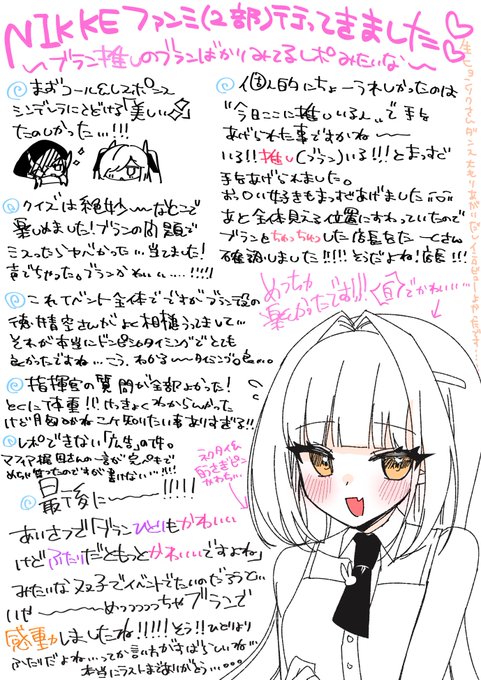 NIKKEファンミ(2部)行ってきました♡♡
〜ブラン推しのブランばかりみてるレポみたいな〜
まずコール&レスポンス
シンデレラにとどける「美しい」
たのしかった…!!!
クイズは絶妙〜なとこで
楽しめました!ブランの問題で
ミスったらヤバかった…当てました!
これイベント全体でですがブラン役の
徳井青空さんがよく相槌うってまして…
それが本当にドンピシャタイミングでとても
良かったですね…こう、わかる〜タイミング良い…
指揮官の質問が全部よかった!
とくに体重!!けっきょくわからんかった
けど
レポできない「広告」の件。
マフィア梶田さんの一言が完ペキで
最後に〜〜!!!!!
あいさつで「ブランひとりもかわいい
けどふたりだともっとかわいいですよね」
みたいな双子でイベントでたいのだろうとい
いや〜〜〜めっっっっっちゃブランで
感動しましたね!!!!!そう!!ひとりより
ふたりだよね…って言い方がすばらしいね…
本当にラストまでありがとう…
個人的にちょーうれしかったのは
"今日ここに推しいる人"で手を
あげられた事ですかね〜〜
いる!!推し(ブラン)いる!!!とまっすぐ
手をあげられました。
あと全体見える位置にすわっていたので
ブランをちゅっちゅっした店長をたーくさん
確認しました!!!!そうだよね!店長!!!
めっちゃ
楽しかったです!!!
ネクタイも
うさぎピン
かわち…